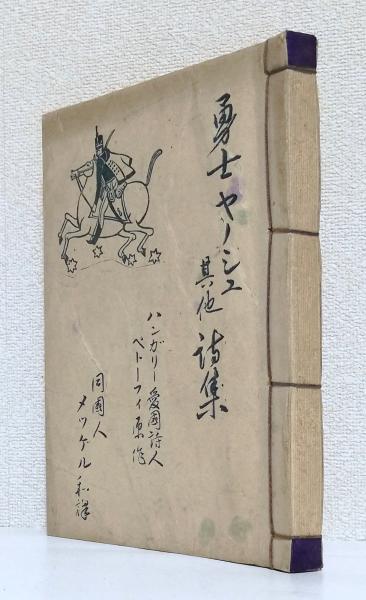 勇士ヤーノシュ
其他
詩集
ハンガリー愛国詩人
ペトーフィ原作
同国人
メッゲル和譯